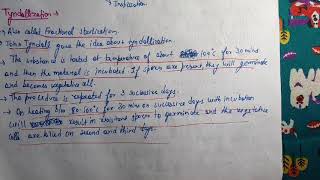 Indication
Tyndallization →
→ Also called Fractional sterilization.
→ John Tyndall gave the idea about tyndallization.
→ The substance is heated at temperature of about 100°C for 30 mins
and then the material is incubated. If spores are present, they will germinate
and becomes vegetative cell.
→ The procedure is repeated for 3 successive days.
→ On heating 80-100°C for 30 mins on successive days with incubation
will result in resistant spores to germinate and the vegetative
cells are killed on second and third day.